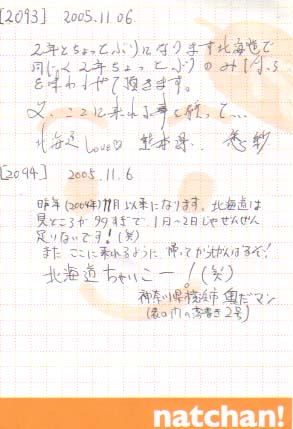 [2093] 2005.11.06.
2年とちょっとぶりになります北海道で
同じく2年ちょっとぶりのみそらーめん
を味わって頂きます。
又、ここに来れる事を願って…
北海道 Love♡ 熊本県..
[2094] 2005.11.6
昨年(2004年)11月以来になります。北海道は
見どころが多すぎで、1日〜2日じゃぜんぜん
足りないです!(笑)
また ここに来れるように、帰ってからがんばるぞ!
北海道ちゃいこー!(笑)
神奈川県横浜市 だマン
natchan!